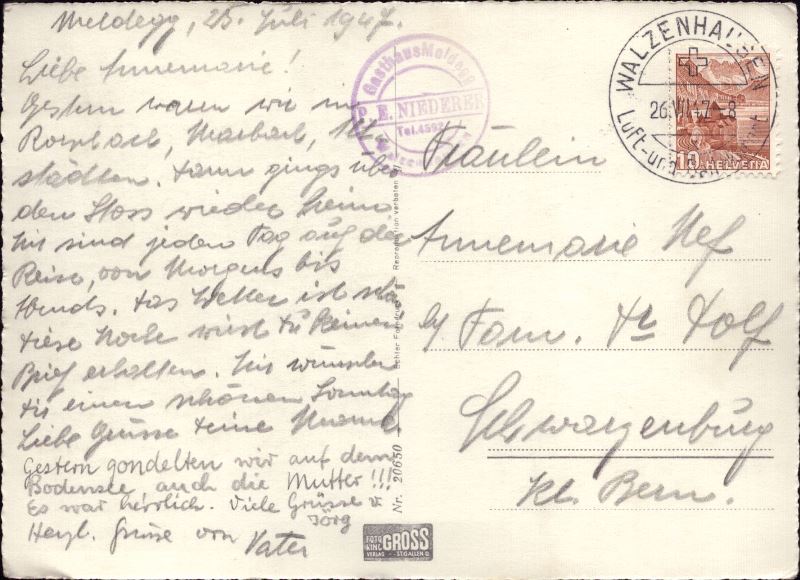 Meldegg, 25. Juli 1947.
Liebe Annemarie!
Gestern waren wir in
Rorschach, Marbach, Alt-
städten. Dann gings über
den Stoss wieder heim.
Wir sind jeden Tag auf der
Reise, von Morgens bis
Abends. Das Wetter ist schön
diese Woche wirst Du keinen
Brief erhalten. Wir wünschen
Dir einen schönen Sonntag
Liebe Grüsse Deine Mama
Gestern gondelten wir auf dem
Bodensee auch die Mutter!!!
Es war herrlich. Viele Grüsse v.
Jörg
Herzl. Grüsse von Vater
Gasthaus Meldegg
E. NIEDERER
Tel. 4592
WALZENHAUSEN
26.VII.47 - 8
Luft- und
10 HELVETIA
Fräulein
Annemarie Nef
b/ Fam. Dr Dolf
Schwarzenburg
Kt. Bern.
Nr. 20650
Echter Fotodruck
Reproduktion verboten
FOTO
KINO GROSS
VERLAG - ST.GALLEN O